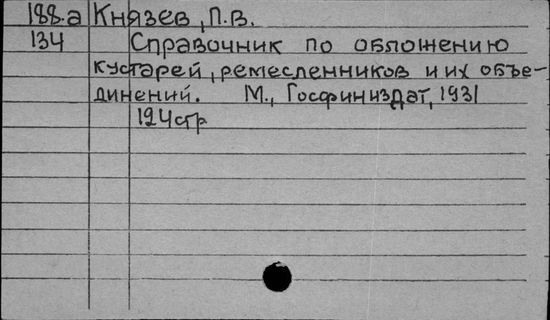 188-а Князев, П.В.
134 Справочник по обложению
кустарей, ремесленников и их объе-
динений. М., Госфиниздат, 1931
124стр